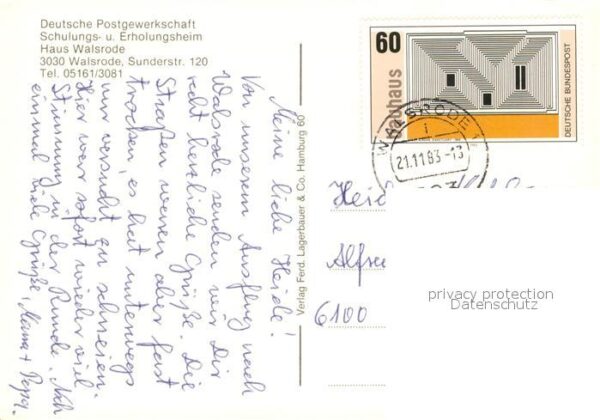 Deutsche Postgewerkschaft
Schulungs- u. Erholungsheim
Haus Walsrode
3030 Walsrode, Sunderstr. 120
Tel. 05161/3081
Meine liebe Heide!
Von unserem Ausflug nach
Walsrode senden wir Dir
recht herzliche Grüße. Die
Straßen waren aber fast
trocken, es hat unterwegs
nur versucht zu schneien.
Hier war sofort wieder viel
Stimmung in der Runde. Noch
einmal viele Grüße, Mama + Papa.
Verlag Ferd. Lagerbauer & Co. Hamburg 60
60
bauhaus
DEUTSCHE BUNDESPOST
WALSRODE 1
21.11.83-13
Heid
Alfre
6100
privacy protection
Datenschutz